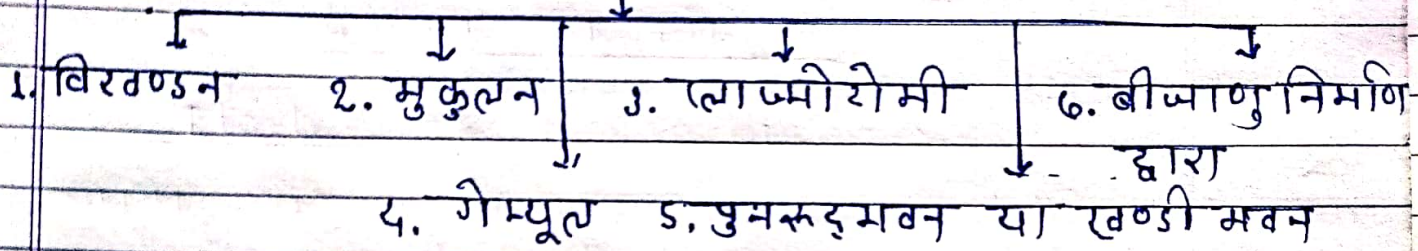 1. विखण्डन 2. मुकुलन 3. प्लाज्मोटोमी 6. बीजाणु निर्माण
द्वारा
4. गेम्यूल 5. पुनरूद्भवन या खण्डी भवन